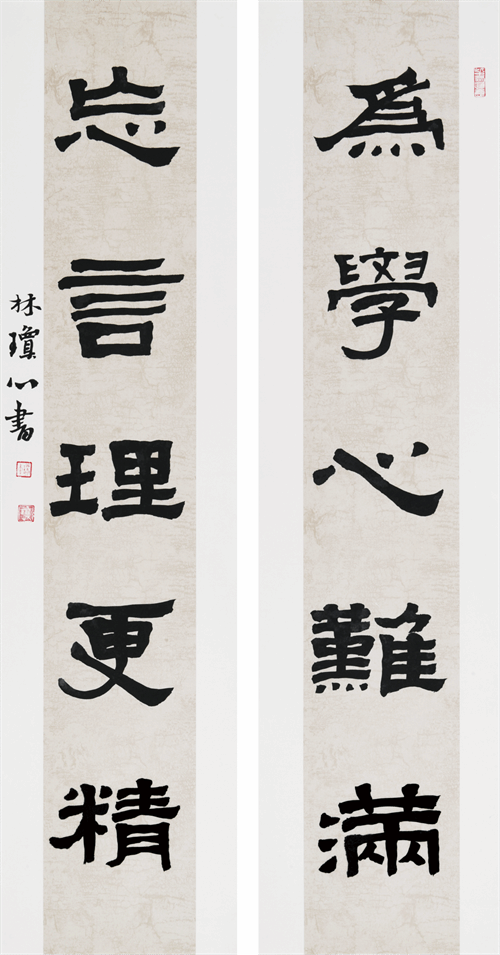 為學心難滿
忘言理更精
林瓊心書